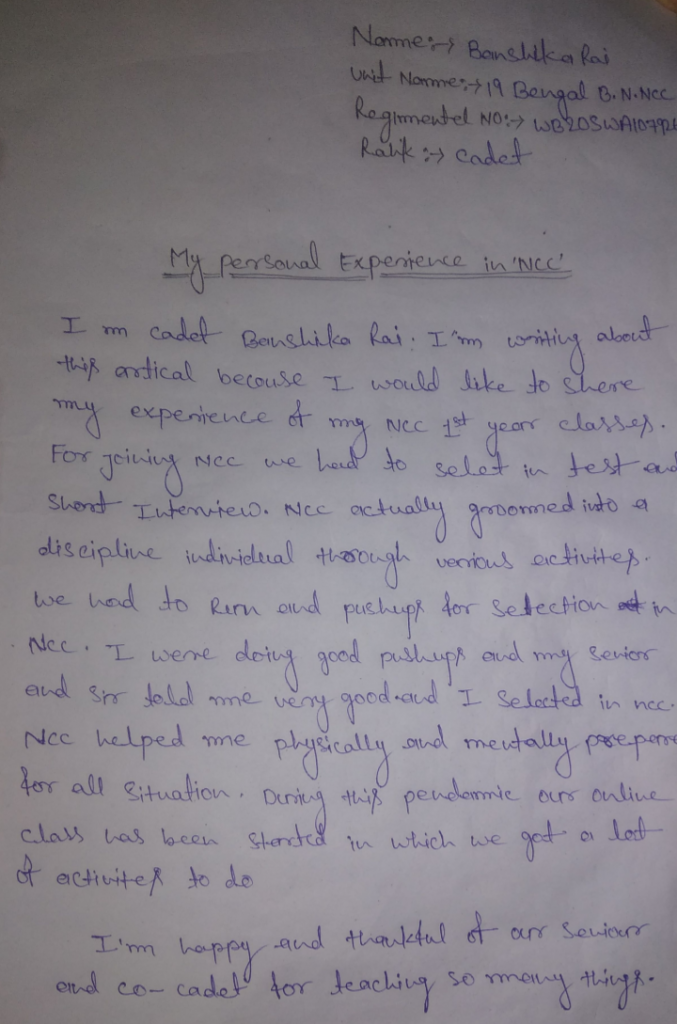 Name:→ Banshika Rai
Unit Name:→ 19 Bengal B.N.NCC
Regimental NO:→ WB20SWA107926
Rank :→ cadet
My personal Experience in 'NCC'
I m cadet Banshika Rai. I'm writing about
this artical because I would like to shere
my experience of my NCC 1st year classes.
For joining NCC we had to selet in test and
short Interview. NCC actually groomed into a
discipline individual thorough various activites.
we had to Run and pushups for selection in
NCC. I were doing good pushups and my senior
and sir told me very good and I selected in ncc.
NCC helped me physically and mentally prepare
for all situation. During this pendemmic our online
class has been started in which we got a lot
of activites to do
I'm happy and thankful of our seniour
and co-cadet for teaching so many things.